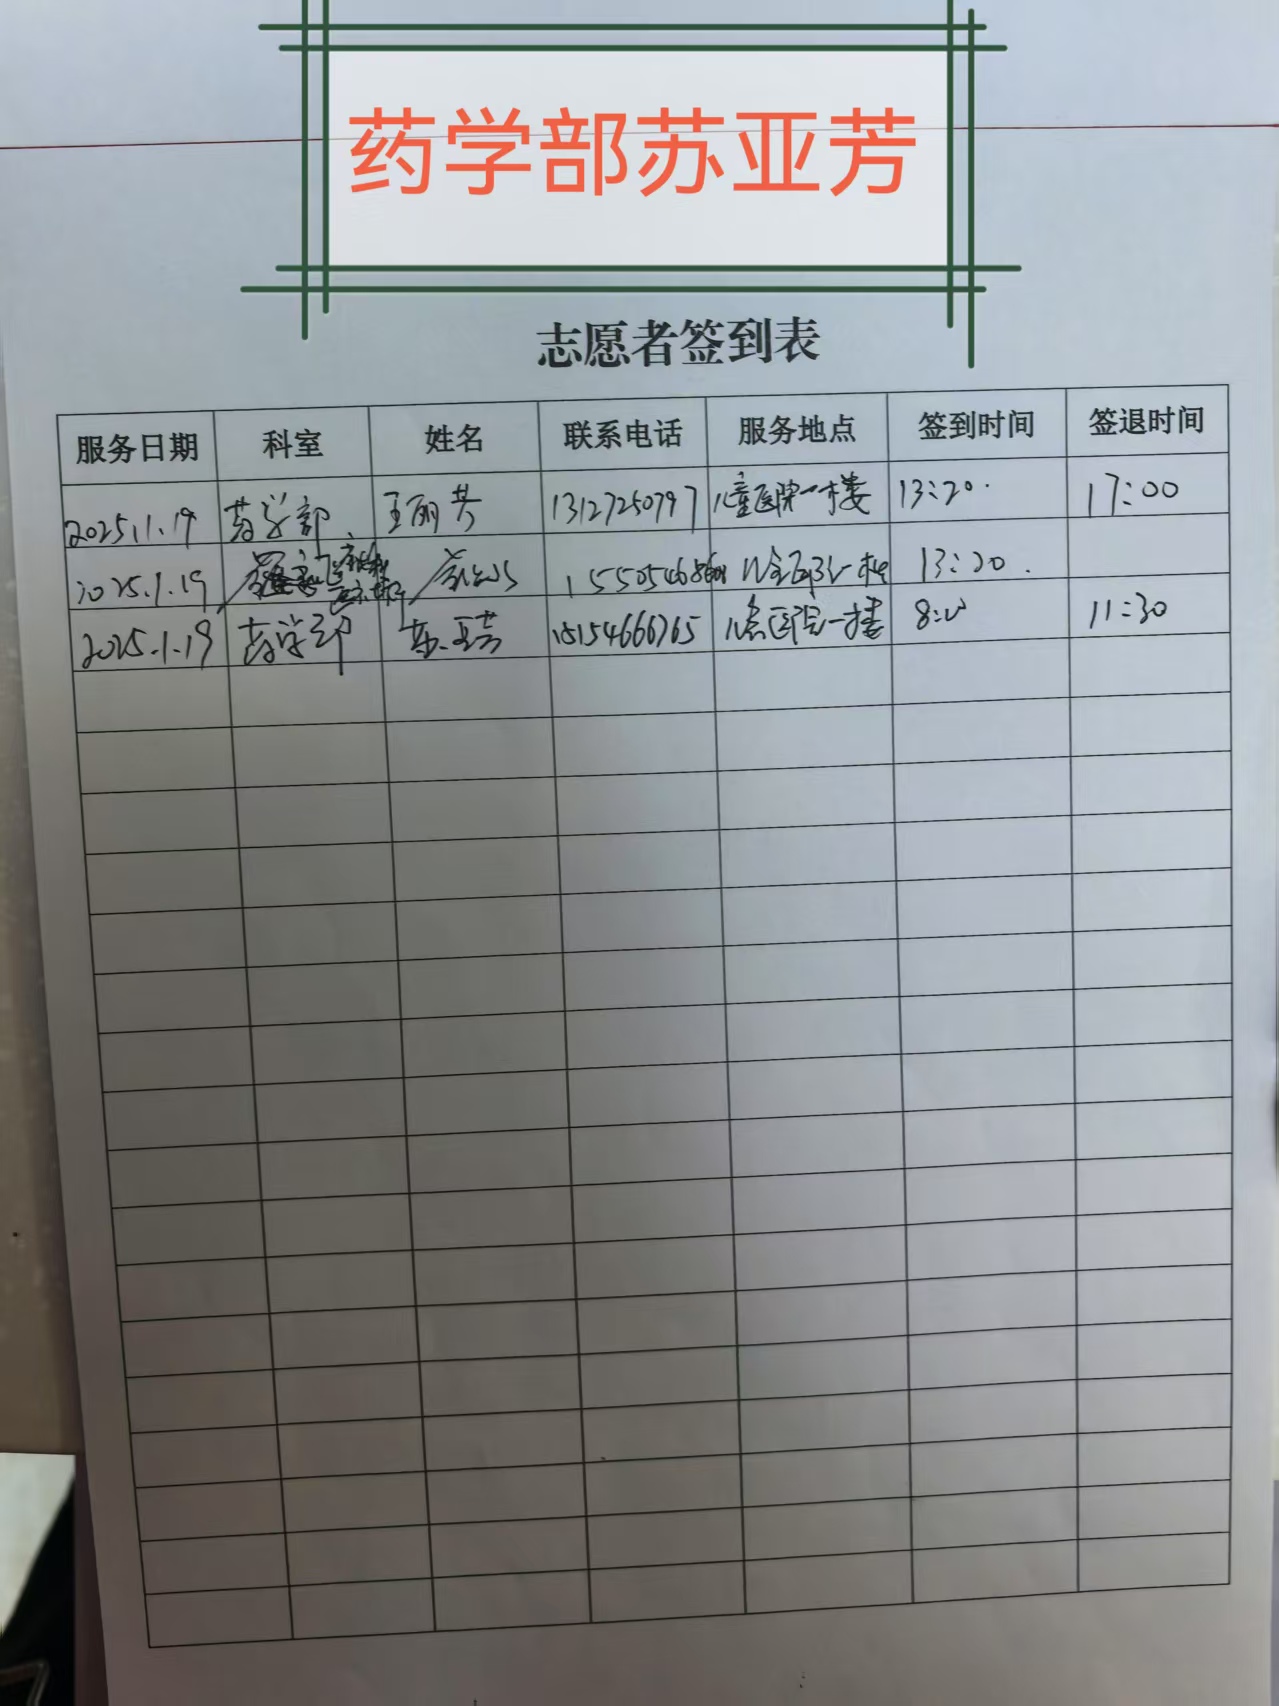 药学部苏亚芳
志愿者签到表
服务日期 科室 姓名 联系电话 服务地点 签到时间 签退时间
2025.1.19 药学部 王丽芳 13127250797 儿童医院一楼 13:20. 17:00
2025.1.19 儿童医院一楼 13:20.
2025.1.19 药学部 苏亚芳 15154666765 儿童医院一楼 8:00 11:30